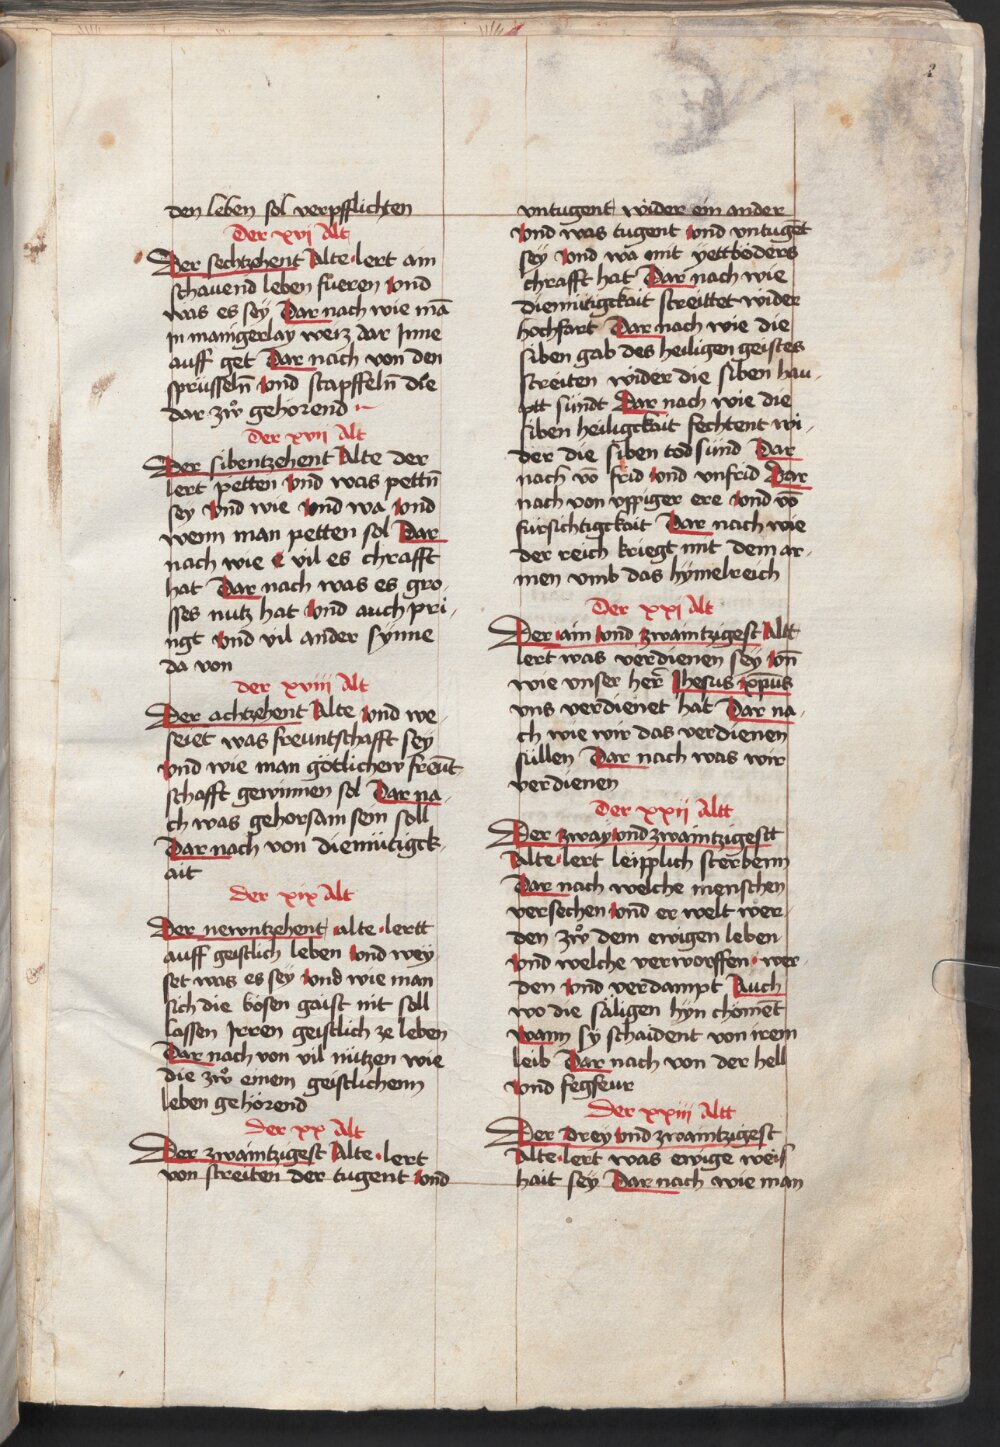 2
den leben sol verpfflichten
Der xvi Alt
Der sechtzehent Alte lert ain
schauend leben fueren Vnd
was es sey Dar nach wie mā
jn manigerlay weiz dar Inne
auff get Dar nach von den
sprüsseln̄ Vnd stapffeln̄ die
dar zwͦ gehörend
Der xvii Alt
Der sibentzehent Alte der
lert petten Vnd was pettn̄
sey Vnd wie Vnd wa Vnd
wenn man petten sol Dar
nach wie vil es chrafft
hat Dar nach was es gro-
sses nutz hat Vnd auch pri-
ngt Vnd vil ander synne
da von
der xviii Alt
Der achtzehent Alte Vnd we-
seiet was freuntschafft sey
Vnd wie man götlicherv freūt-
schafft gewinnen sol Dar na-
ch was gehorsam sein soll
Dar nach von diemütigck-
ait
der xix Alt
Der newntzehent alte lertt
auff geistlich leben Vnd wey
set was es sey Vnd wie man
sich die bösen gaist nit soll
lassen Irren geistlich ze leben
Dar nach von vil nützen wie
die zwͦ einem geistlichenn
leben gehörend
der xx Alt
Der zwaintzigest Alte lert
von streiten der tugent Vnd
vntugent wider ein ander
Vnd was tugent Vnd vntugēt
sey Vnd wa mit yettböders
chrafft hat Dar nach wie
diemütigckait streittet wider
hochfart Dar nach wie die
siben gab des heiligen geistes
streiten wider die siben hau-
ptt sündt Dar nach wie die
siben heiligckait fechtent wi-
der die siben tod sünd Dar
nach vō frid Vnd vnfrid Dar
nach von vppiger ere Vnd vō
fürsichtigckait Dar nach wie
der reich kriegt mit dem ar-
men vmb das hymelreich
Der xxi Alt
Der ain Vnd zwaintzigest Altt
lert was verdienen sey Vn̄
wie vnser her̄ Jhesus xp̄us
vns verdienet hat Dar na-
ch wie wir das verdienen
süllen Dar nach was wir
verdienen
Der xxii Altt
Der zway Vnd zwaintzigestt
Alte lert leipplich sterbenn
Dar nach welche menschen
versechen Vnd er welt wer-
den zwͦ dem ewigen leben
Vnd welche verworffen wer
den Vnd verdampt Auch
wo die säligen hyn chömēt
wann sy schaident von irem
leib Dar nach von der hell
Vnd fegfeur
Der xxiii Altt
Der drey Vnd zwaintzigest
Alte lert was ewige weis
hait sey Dar nach wie man